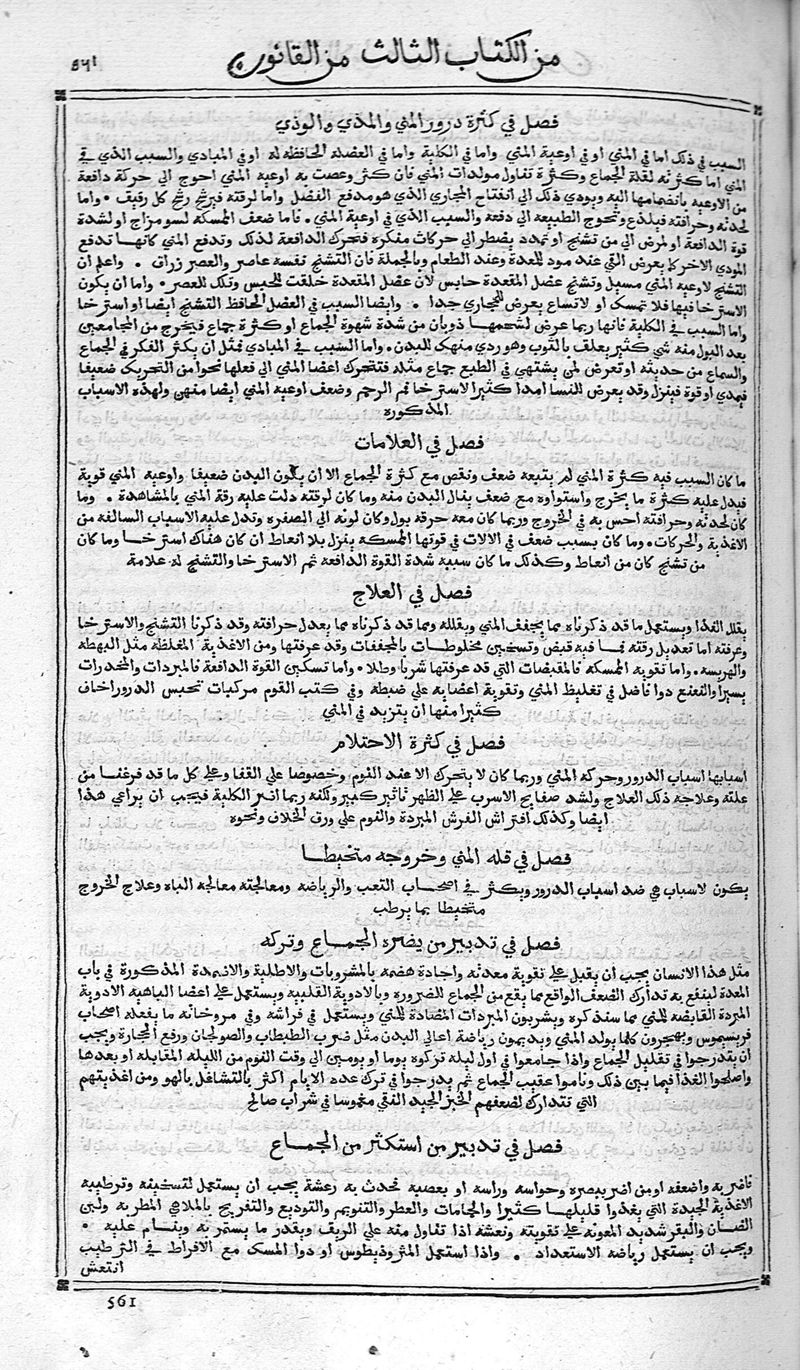 ٥٦١
من الكتاب الثالث من القانون
فصل في كثرة درور المني والمذي والوذي
السبب في ذلك اما في المني او في اوعية المني واما في الكلية واما في العضلة الحافظة له او في المبادي والسبب الذي في
المني اما كثرته لقلة الجماع وكثرة تناول مولدات المني فان كثر وعصت به اوعية المني احوج الي حركة دافعة
من الاوعية بانضمامها اليه ويودي ذلك الي انفتاح المجاري الذي هو مدفع الفضل واما لرقته فيرشح رشح كل رقيق • واما
لحدته وحرافته فيلذع ويحوج الطبيعة الي دفعة والسبب الذي في اوعية المني • فاما ضعف الماسكة لسو مزاج او لشدة
قوة الدافعة او لمرض الي من تشنج او تمدد يضطر الي حركات منكره فتحرك الدافعة لذلك وتدفع المني كانها تدفع
المودي الاخر كما يعرض القي عند مود للمعدة وعند الطعام وبالجملة فان التشنج نفسه عاصر والعصر زراق • واعلم ان
التشنج لاوعية المني مسيل وتشنج عضل المقعدة حابس لان عضل المقعدة خلقت للحبس وتلك للعصر • واما ان يكون
الاسترخا فيها فلا تمسك او لاتساع يعرض للمجاري جدا • وايضا السبب في العضل الحافظ التشنج ايضا او استرخا
واما السبب في الكلية فانها ربما عرض لشحمها ذوبان من شدة شهوة الجماع او كثرة جماع فيخرج من المجامعين
بعد البول منه شي كثير يعلق بالثوب وهو ردي منهك للبدن • واما السبب في المبادي فمثل ان يكثر الفكر في الجماع
والسماع من حديثه او تعرض لمن يشتهي في الطبع جماع مثله فتتحرك اعضا المني الي فعلها نحوا من التحريك ضعيفا
فيمدي او قوة فينزل وقد يعرض للنسا امدا كثيرا لاسترخا فم الرحم وضعف اوعية المني ايضا منهن ولهذه الاسباب
المذكورة
فصل في العلامات
ما كان السبب فيه كثرة المني لم يتبعه ضعف ونقص مع كثرة الجماع الا ان يكون البدن ضعيفا واوعية المني قوية
فيدل عليه كثرة ما يخرج واستواوه مع ضعف ينال البدن منه وما كان لرقته دلت عليه رقة المني بالمشاهدة • وما
كان لحدته وحرافته احس به في الخروج وربما كان معه حرقة بول وكان لونه الي الصفرة وتدل عليه الاسباب السالفة من
الاغذية والحركات • وما كان بسبب ضعف في الالات في قوتها الماسكة ينزل بلا انعاظ ان كان هناك استرخا وما كان
من تشنج كان من انعاظ وكذلك ما كان سببه شدة القوة الدافعة ثم الاسترخا والتشنج له علامة
فصل في العلاج
يقلل الغذا ويستعمل ما قد ذكرناه مما يجفف المني ويقلله ومما قد ذكرناه مما يعدل حرافته وقد ذكرنا التشنج والاسترخا
وعرفته اما تعديل رقته فما فيه قبض وتسخين مخلوطات بالمجففات وقد عرفتها ومن الاغذية المغلظة مثل البهطة
والهريسة • واما تقوية الماسكة فالمقبضات التي قد عرفتها شربا وطلا • واما تسكين القوة الدافعة فالمبردات والمخدرات
يسيرا والنعنع دوا فاضل في تغليظ المني وتقوية اعضايه علي ضبطه وفي كتب القوم مركبات تحبس الدرور اخاف
كثيرا منها ان يتزيد في المني
فصل في كثرة الاحتلام
اسبابها اسباب الدرور وحركة المني وربما كان لا يتحرك الا عند النوم وخصوصا علي القفا وعلي كل ما قد فرغنا من
علته وعلاجه ذلك العلاج ولشد صفايح الاسرب علي الظهر تاثير كبير ولكنه ربما اضر الكلية فيجب ان يراعي هذا
ايضا وكذلك افتراش الفرش المبردة والنوم علي ورق الخلاف ونحوه
فصل في قلة المني وخروجه متخيطا
يكون لاسباب هي ضد اسباب الدرور ويكثر في اصحاب التعب والرياضة ومعالجته معالجة الباه وعلاج الخروج
متخيطا بما يرطب
فصل في تدبير من يضره الجماع وتركه
مثل هذا الانسان يجب ان يقبل علي تقوية معدته واجادة هضمه بالمشروبات والاطلية والاضمدة المذكورة في باب
المعدة لينفع به تدارك الضعف الواقع مما يقع من الجماع للضرورة وبالادوية القلبية ويستعمل علي اعضا الباهية الادوية
المبردة القابضة للمني مما سنذكره ويشربون المبردات المضادة للمني ويستعمل في فراشه وفي مروخاته ما يفعله اصحاب
فريسيموس ويهجرون كلما يولد المني ويديمون رياضة اعالي البدن مثل ضرب الطبطاب والصولجان ورفع الحجارة ويجب
ان يتدرجوا في تقليل الجماع واذا جامعوا في اول ليلة تركوه يوما او يومين الي وقت النوم من الليلة المقابلة او بعدها
واصلحوا الغذا فيما بين ذلك وناموا عقيب الجماع ثم يدرجوا في ترك عده الايام اكثر بالتشاغل بالهو ومن اغذيتهم
التي تتدارك لضعفهم الخبز الجيد النقي مغموسا في شراب صالح
فصل في تدبير من استكثر من الجماع
فاضر به واضعفه او من اضر ببصره وحواسه وراسه او بعصبه تحدث به رعشة يجب ان يستعمل لتسخينه وترطيبه
الاغذية الجيدة التي يغذوا قليلها كثيرا والحمامات والعطر والتنويم والتوديع والتفريح بالملاهي المطربة ولبن
الضان والبقر شديد المعونة علي تقويته ونعشه اذا تناول منه علي الريق وبقدر ما يستمر به وينام عليه •
ويجب ان يستعمل رياضة الاستعداد • واذا استعمل المثروذيطوس او دوا المسك مع الافراط في الترطيب
انتعش
561